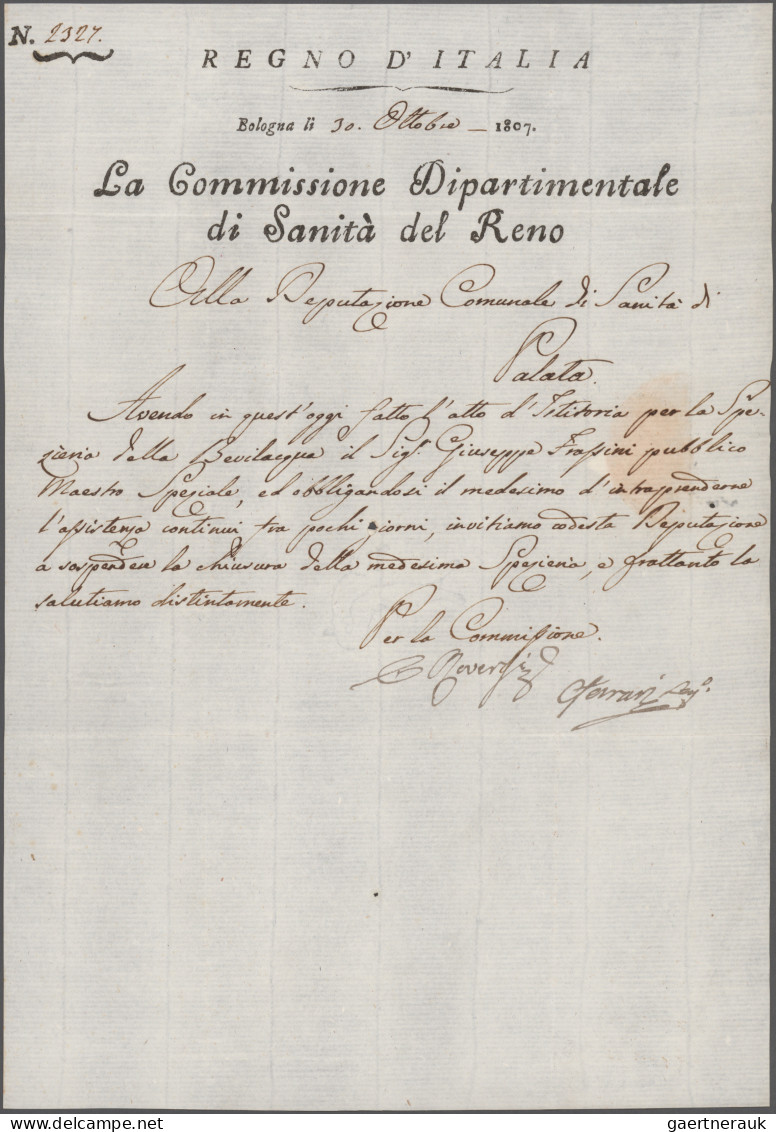 N. 2327.
REGNO D'ITALIA
Bologna li 30. Ottobre — 1807.
La Commissione Dipartimentale
di Sanità del Reno
Alla Deputazione Comunale di Sanità di
Palata.
Avendo in quest'oggi fatto l'atto d'Istitoria per la Spe-
zieria della Bevilacqua il Sig.r Giuseppe Frassini pubblico
Maestro Speziale, ed obbligandosi il medesimo d'intraprenderne
l'assistenza continui fra pochi giorni, invitiamo codesta Deputazione
a sospendere la chiusura della medesima Spezieria, e frattanto la
salutiamo distintamente.
Per la Commissione.
Ferrari Seg.o
gaertnerauk